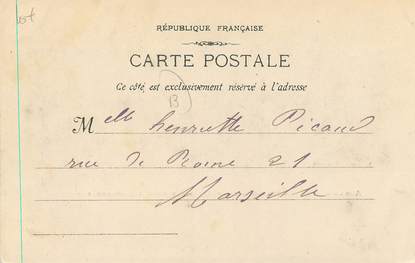 RÉPUBLIQUE FRANÇAISE
CARTE POSTALE
Ce côté est exclusivement réservé à l'adresse
B
Melle henriette Picaud
rue de Rome 21
Marseille